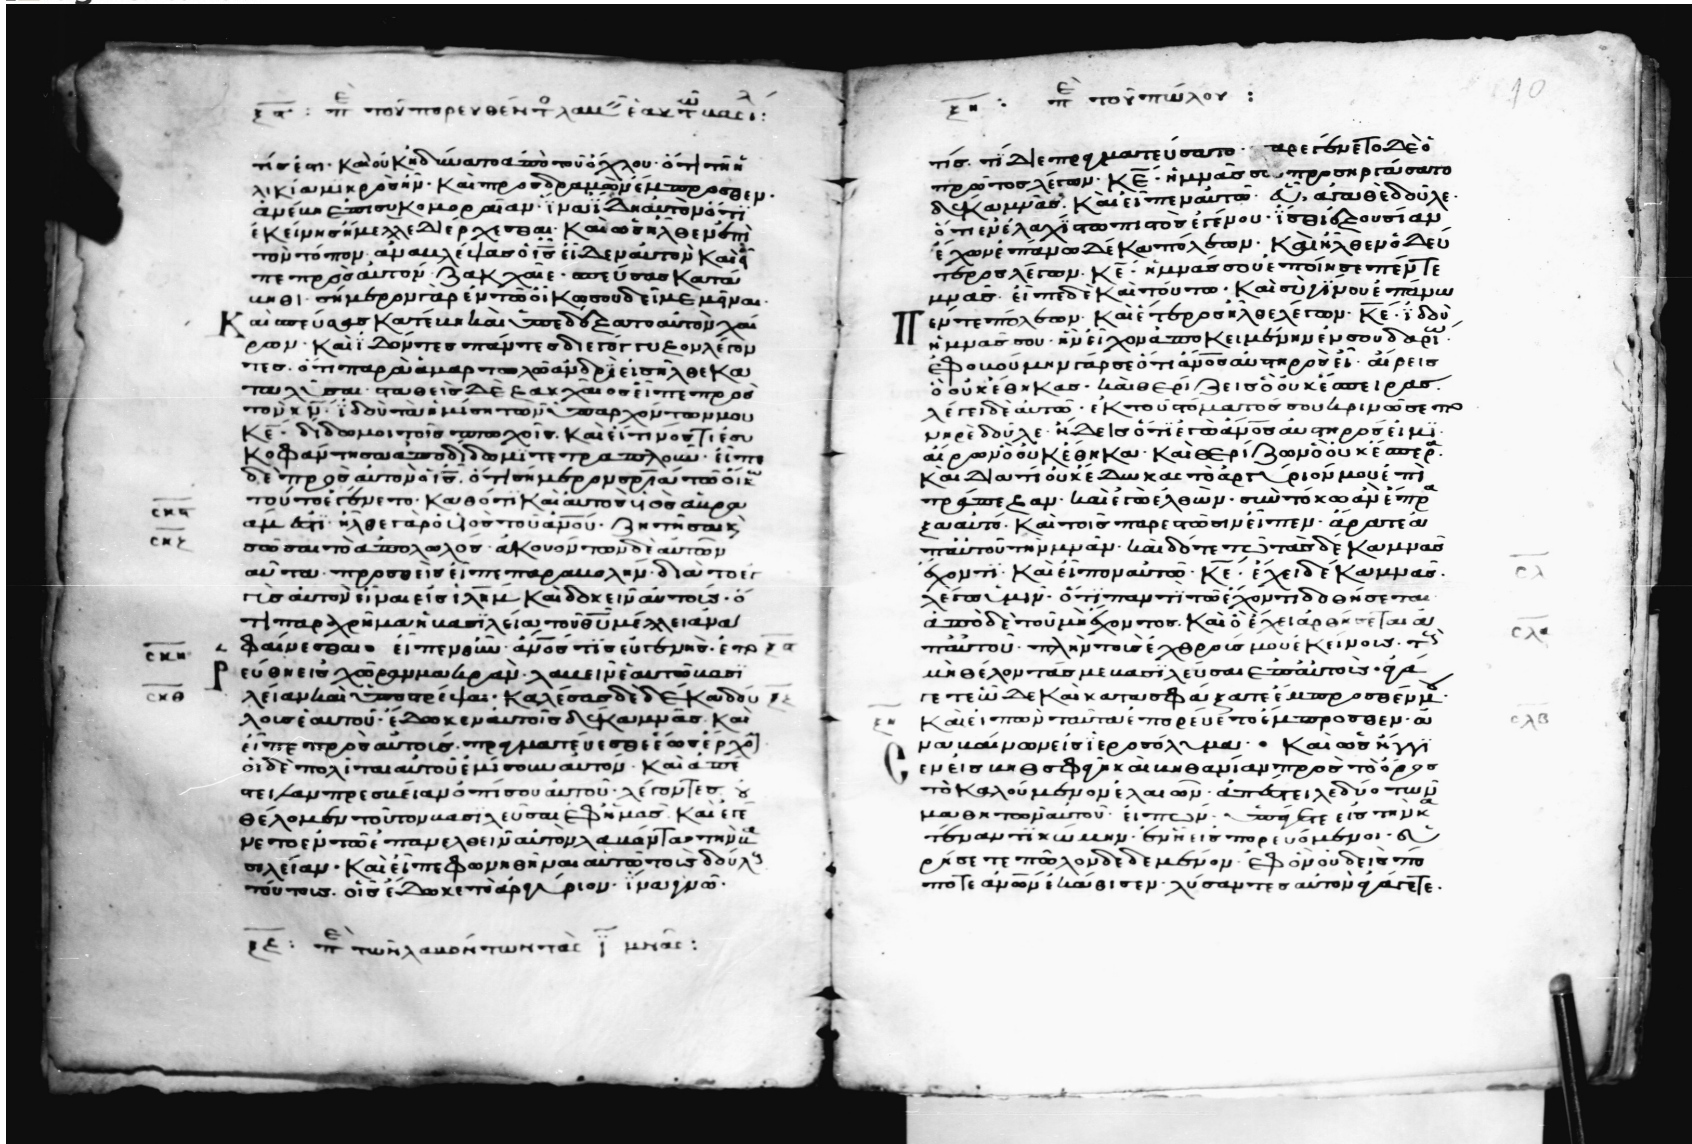 πὲ τοῦ πορευθέντο λαβ ἑαυτῶ βασιλ :
τίς ἐστι· καὶ οὐκ ἠδύνατο ἀπὸ τοῦ ὄχλου· ὅτι τῆ ἡ
λικία μικρὸς ἦν· καὶ προσδραμὼν ἔμπροσθεν·
ἀνέβη ἐπὶ συκομοραίαν· ἵνα ἴδη αὐτὸν ὅτι
ἐκείνης ἤμελλε διέρχεσθαι· καὶ ὡς ἦλθεν ἐπὶ
τὸν τόπον· ἀναβλέψας ὁ ἰς εἶδεν αὐτὸν καὶ εἶ
πε πρὸς αὐτόν· Ζακχαῖε· σπεύσας κατά
βηθι· σήμερον γὰρ ἐν τῶ οἴκω σου δεῖ με μεῖναι·
Καὶ σπεύσας κατέβη καὶ ὑπεδέξατο αὐτὸν χαί
ρων· καὶ ἰδόντες πάντες διεγόγγυζον λέγον
τες· ὅτι παρὰ ἁμαρτωλῶ ἀνδρὶ εἰσῆλθε κα
ταλῦσαι· σταθεὶς δὲ ζακχαῖος εἶπε πρὸς
τὸν κν· ἰδοὺ τὰ ἡμίση τῶν ὑπαρχόντων μου
κε· δίδωμι τοῖς πτωχοῖς· καὶ εἴ τινός τι ἐσυ
κοφάντησα ἀποδίδωμι τετραπλοῦν· εἶπε
δὲ πρὸς αὐτὸν ὁ ις· ὅτι σήμερον σρία τῶ οἴκω
τούτω ἐγένετο· καθότι καὶ αὐτὸς υἱὸς ἀβρα
άμ ἐστι· ἦλθε γὰρ ὁ υἱὸς τοῦ ανου· ζητῆσαι κ
σῶσαι τὸ ἀπολωλός· ἀκουόντων δὲ αὐτῶν
ταῦτα· προσθεὶς εἶπε παραβολήν· διὰ τὸ ἐγ
γὺς αὐτὸν εἶναι εἰς ιλημ καὶ δοκεῖν αὐτοῖς· ὅ
τι παραχρῆμα ἡ βασιλεία τοῦ θυ μέλλει ἀνα
φαίνεσθαι· εἶπεν οὖν· ανος τίς εὐγενὴς· ἐπο
ρεύθη εἰς χώραν μακράν· λαβεῖν ἑαυτῶ βασι
λείαν καὶ ὑποστρέψαι· καλέσας δὲ δέκα δού
λους ἑαυτοῦ· ἔδωκεν αὐτοῖς δέκα μνᾶς· καὶ
εἶπε πρὸς αὐτούς· πραγματεύεσθε ἕως ἔρχο
οἱ δὲ πολῖται αὐτοῦ ἐμίσουν αὐτόν· καὶ ἀπέ
στειλαν πρεσβείαν ὀπίσω αὐτοῦ· λέγοντες· οὐ
θέλομεν τοῦτον βασιλεῦσαι ἐφ ἡμᾶς· καὶ ἐγέ
νετο ἐν τῶ ἐπανελθεῖν αὐτὸν λαβόντα τὴν βα
σιλείαν· καὶ εἶπε φωνηθῆναι αὐτῶ τοὺς δούλους
τούτους· οἷς ἔδωκε τὸ ἀργύριον· ἵνα γνῶ·
πὲ τῶν λαβόντων τὰς ι μνᾶς :
σκη
σκθ
ξη : πὲ τοῦ πώλου :
τίς· τί διεπραγματεύσατο· παρεγένετο δὲ ὁ
πρῶτος λέγων· κε· ἡ μνᾶς σου προσηργάσατο
δέκα μνᾶς· καὶ εἶπεν αὐτῶ· εὖ, ἀγαθὲ δοῦλε·
ὅτι ἐν ἐλαχίστω πιστὸς ἐγένου· ἴσθι ἐξουσίαν
ἔχων ἐπάνω δέκα πόλεων· καὶ ἦλθεν ὁ δεύ
τερος λέγων· κε· ἡ μνᾶς σου ἐποίησε πέντε
μνᾶς· εἶπε δὲ καὶ τούτω· καὶ σὺ γίνου ἐπάνω
Πέντε πόλεων· καὶ ἕτερος ἦλθε λέγων· κε· ἰδοὺ
ἡ μνᾶς σου· ἣν εἶχον ἀποκειμένην ἐν σουδαρίω·
ἐφοβούμην γάρ σε ὅτι ανος αὐστηρὸς εἶ· αἴρεις
ὃ οὐκ ἔθηκας· καὶ θερίζεις ὃ οὐκ ἔσπειρας·
λέγει δὲ αὐτῶ· ἐκ τοῦ στόματός σου κρίνω σε πο
νηρὲ δοῦλε· ἤδεις ὅτι ἐγὼ ανος αὐστηρός εἰμι·
αἴρων ὃ οὐκ ἔθηκα· καὶ θερίζων ὃ οὐκ ἔσπερ
καὶ διατί οὐκ ἔδωκας τὸ ἀργύριόν μου ἐπὶ
τράπεζαν· καὶ ἐγὼ ἐλθὼν· σὺν τόκω ἂν ἔπρα
ξα αὐτό· καὶ τοῖς παρεστῶσιν εἶπεν· ἄρατε ἀ
π αὐτοῦ τὴν μνᾶν· καὶ δότε τῶ τὰς δέκα μνᾶς
ἔχοντι· καὶ εἶπον αὐτῶ· κε· ἔχει δέκα μνᾶς·
λέγω ὑμῖν· ὅτι παντὶ τῶ ἔχοντι δοθήσεται
ἀπὸ δὲ τοῦ μὴ ἔχοντος· καὶ ὃ ἔχει ἀρθήσεται ἀ
π αὐτοῦ· πλὴν τοὺς ἐχθρούς μου ἐκείνους· τοὺς
μὴ θέλοντάς με βασιλεῦσαι ἐπ αὐτούς· ἀγά
γετε ὧδε καὶ κατασφάξατε ἔμπροσθέν μου·
καὶ εἰπὼν ταῦτα ἐπορεύετο ἔμπροσθεν· ἀ
ναβαίνων εἰς ἱεροσόλυμα· Καὶ ὡς ἤγγι
σεν εἰς βηθσφαγὴ καὶ βηθανίαν πρὸς τὸ ὄρος
τὸ καλούμενον ἐλαιῶν· ἀπέστειλε δύο τῶν
μαθητῶν αὐτοῦ· εἰπών· ὑπάγετε εἰς τὴν κα
τέναντι κώμην· ἐν ἧ εἰσπορευόμενοι· εὑ
ρήσετε πῶλον δεδεμένον· ἐφ ὃν οὐδεὶς πώ
ποτε ανων ἐκάθισεν· λύσαντες αὐτὸν ἀγάγετε·
σλ
σλα
σλβ